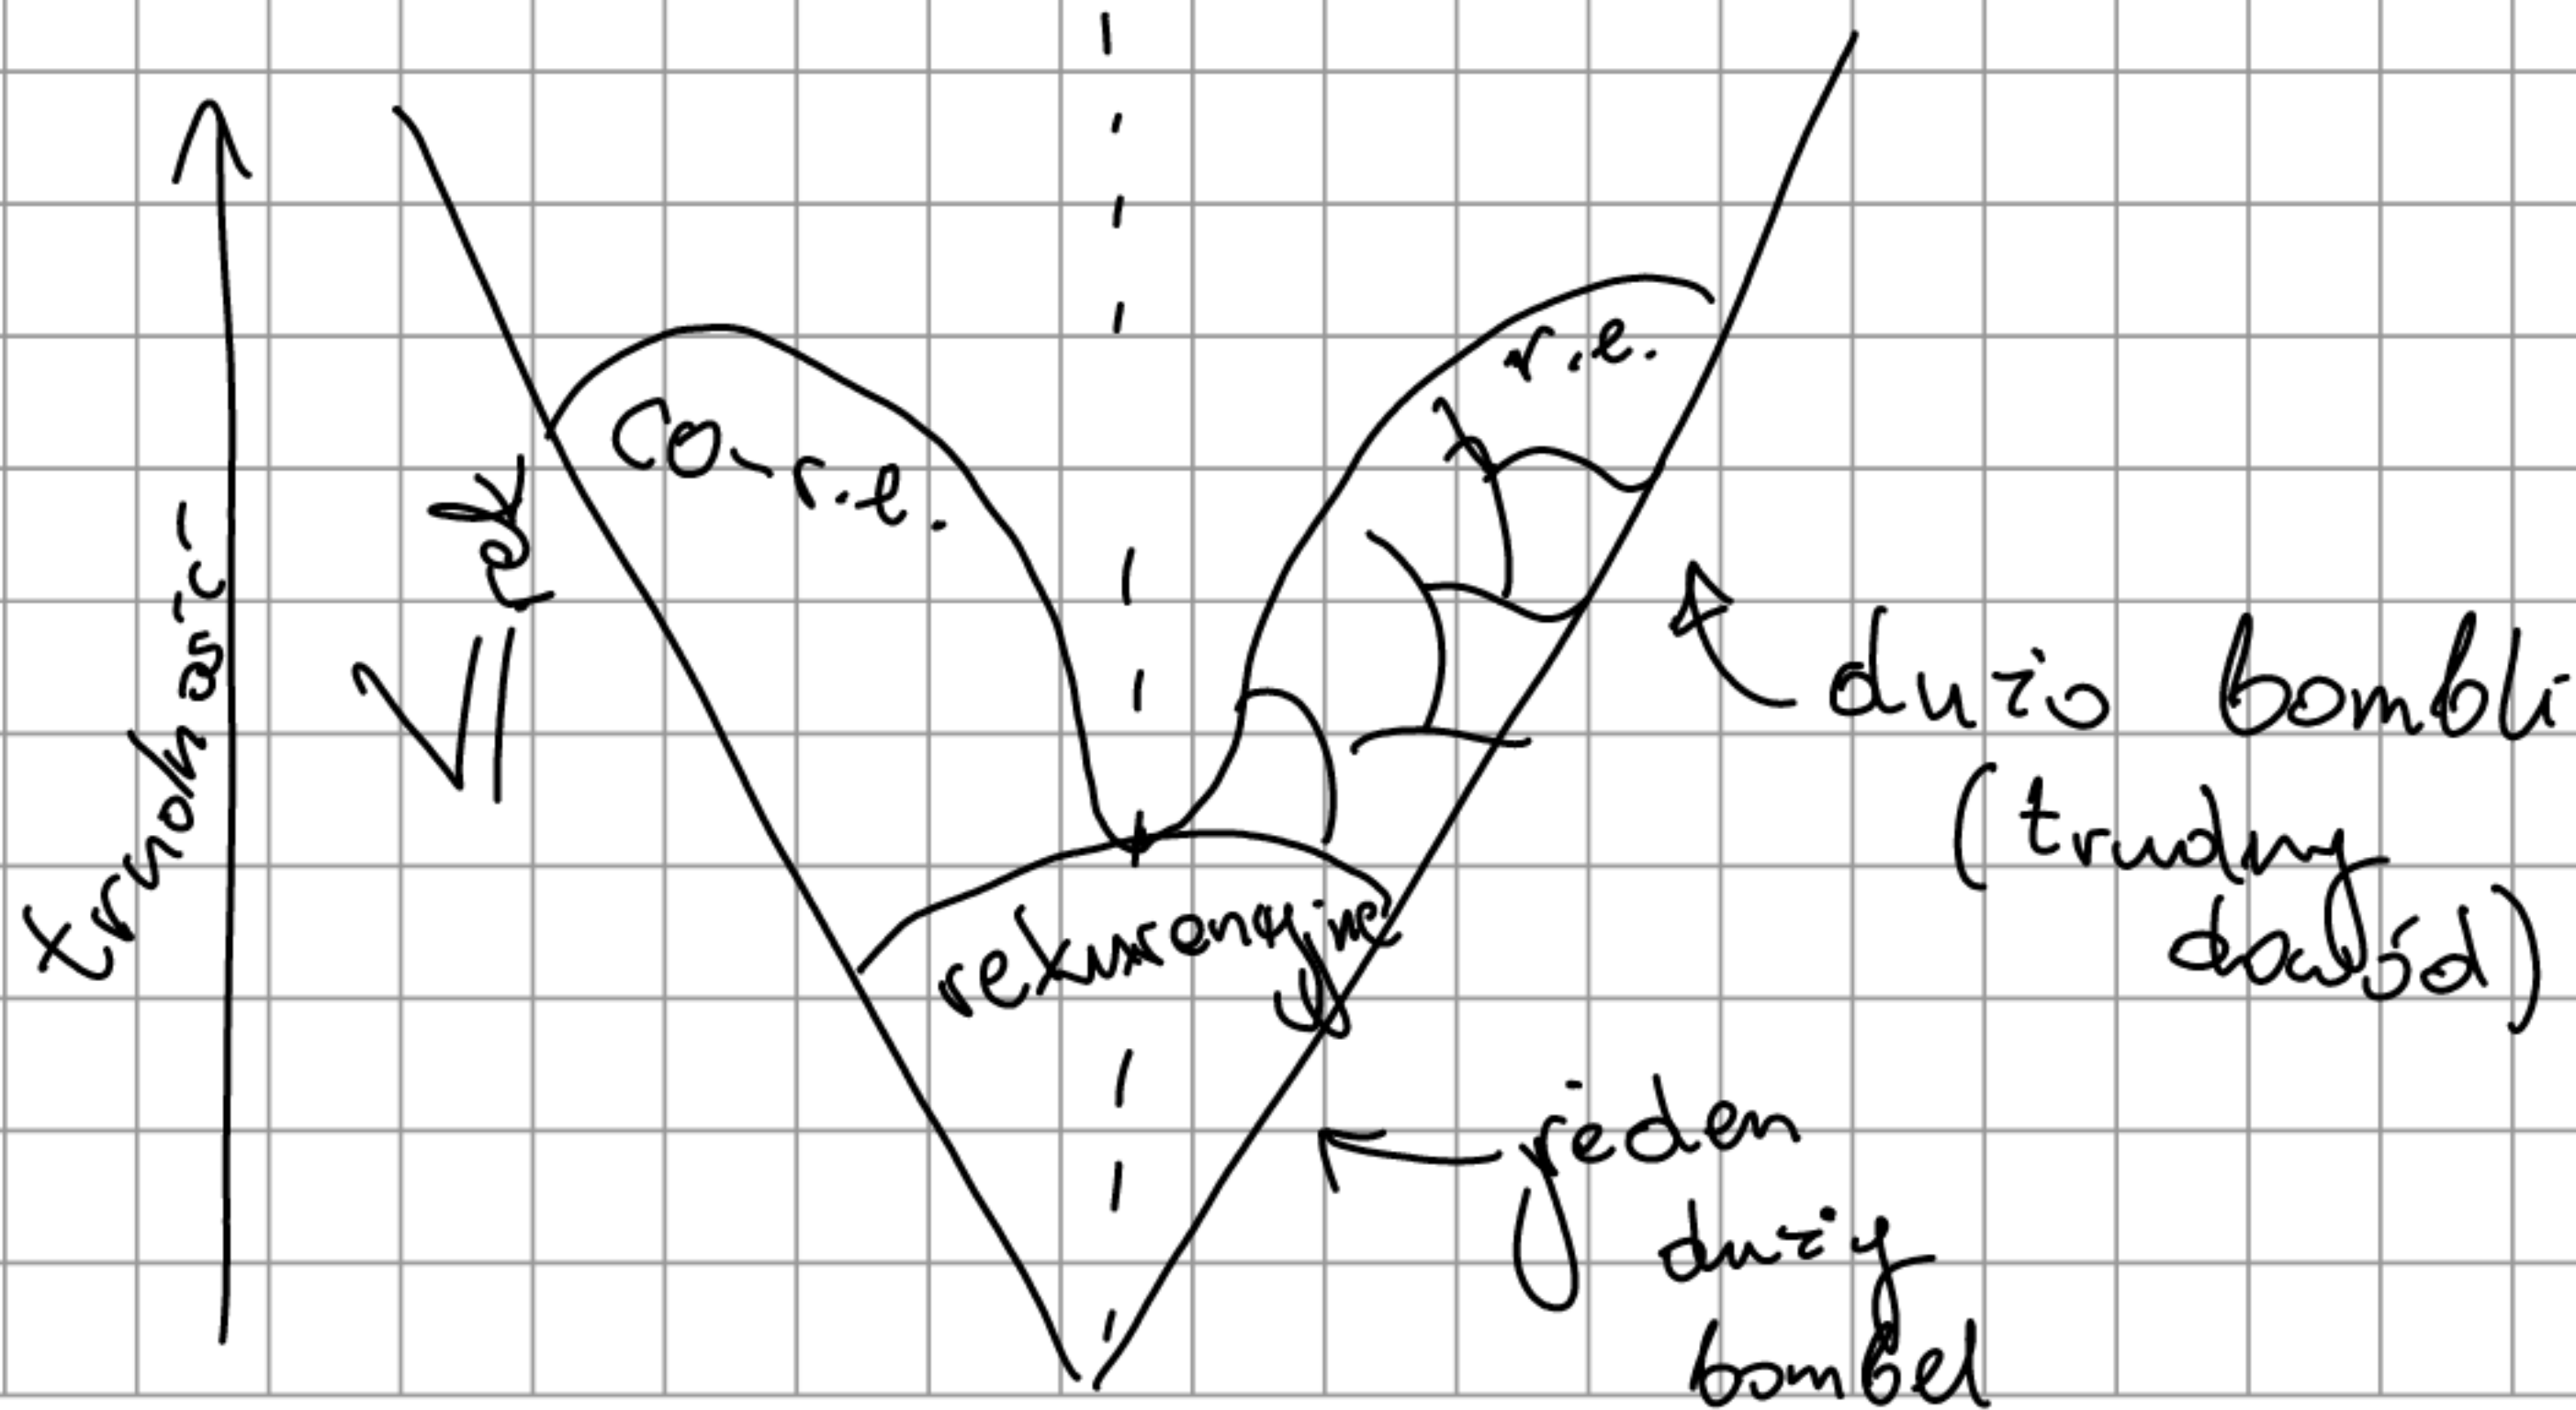 trudność
≤ rek
co-r.e.
r.e.
rekurencyjne
dużo bombli
(trudny
dowód)
jeden
duży
bombel